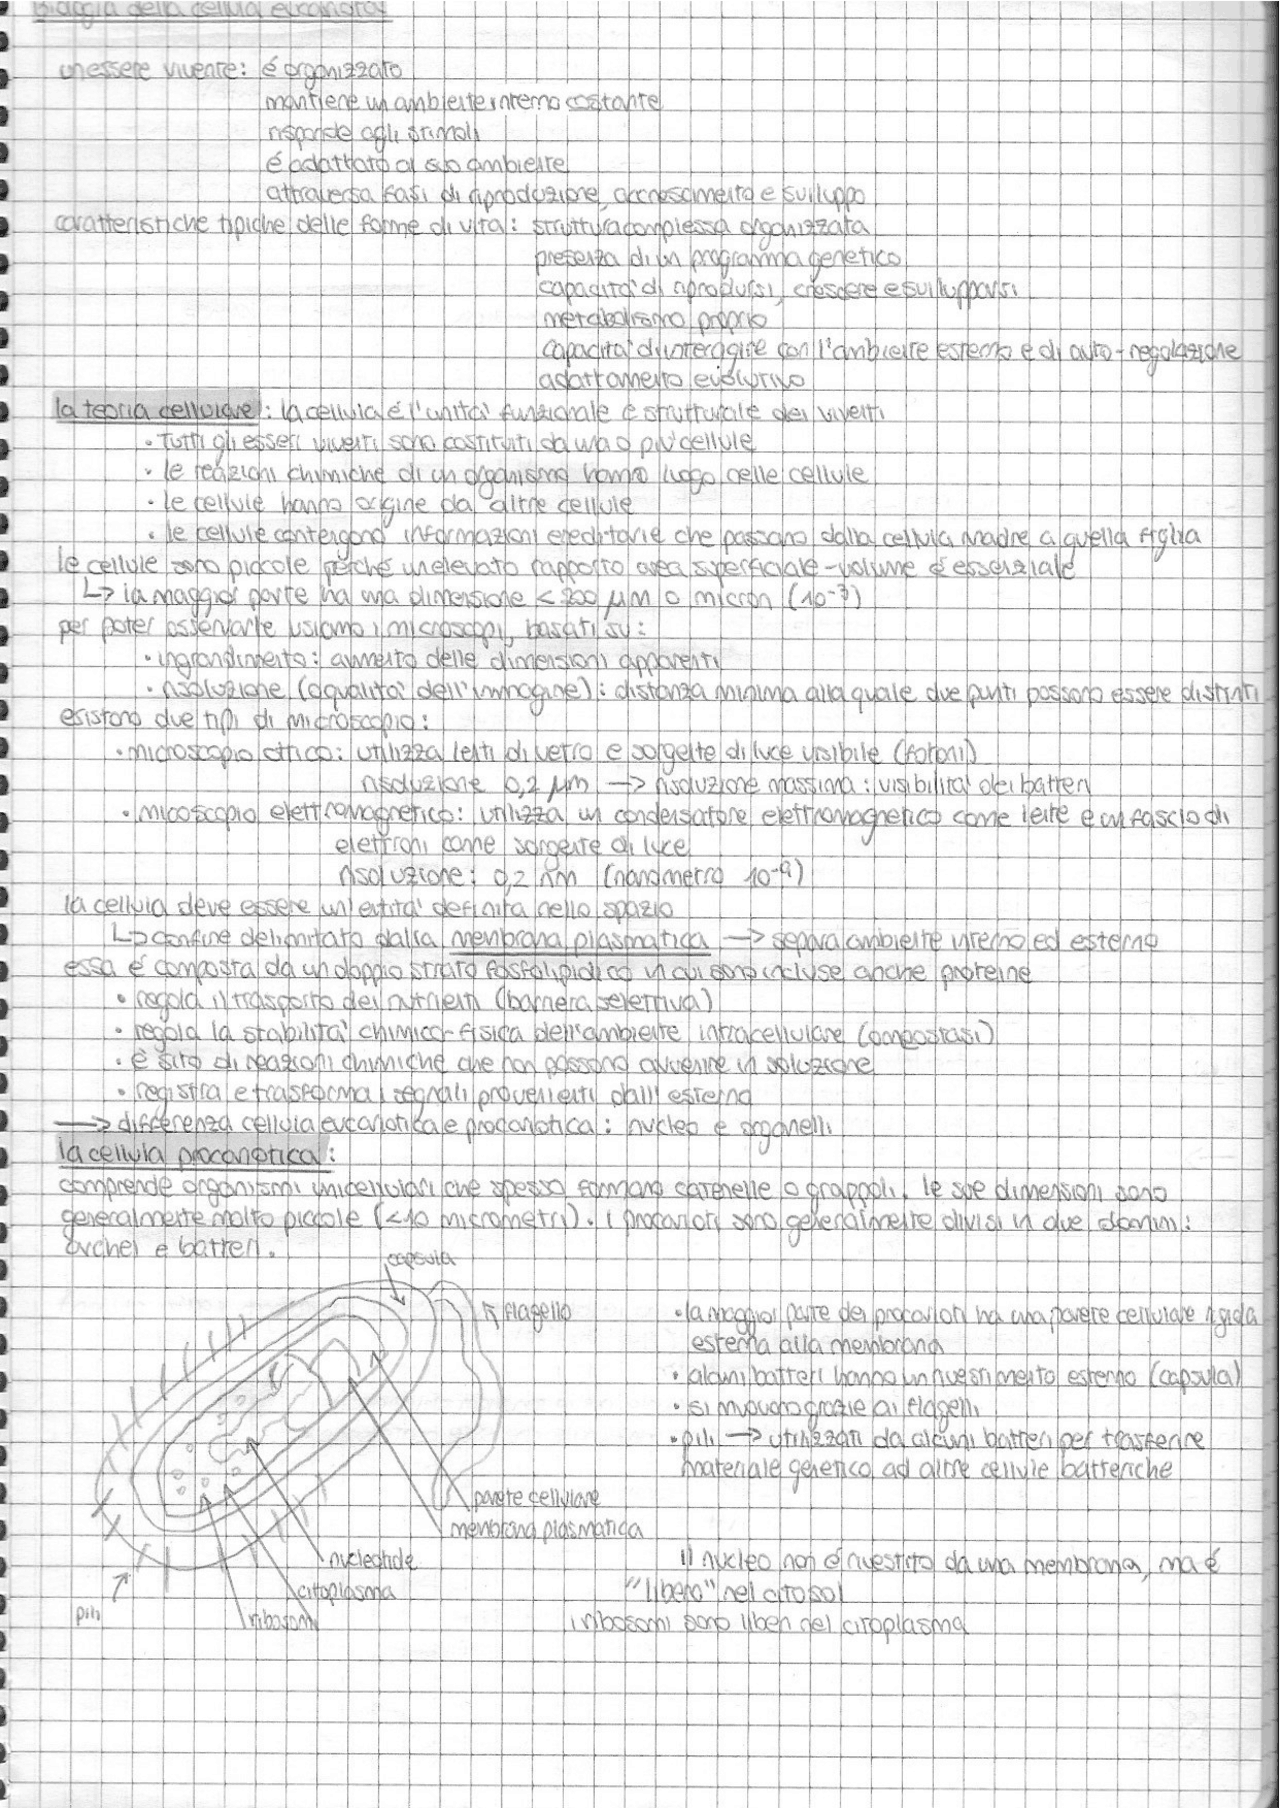 biologia della cellula eucariota
un essere vivente: é organizzato
mantiene un ambiente interno costante
risponde agli stimoli
é adattato al suo ambiente
attraversa fasi di riproduzione, accrescimento e sviluppo
caratteristiche tipiche delle forme di vita: struttura complessa organizzata
presenza di un programma genetico
capacità di riprodursi, crescere e svilupparsi
metabolismo proprio
capacità di interagire con l'ambiente esterno e di auto-regolazione
adattamento evolutivo
la teoria cellulare: la cellula é l'unità funzionale e strutturale dei viventi
· tutti gli esseri viventi sono costituiti da una o più cellule
· le reazioni chimiche di un organismo hanno luogo nelle cellule
· le cellule hanno origine da altre cellule
· le cellule contengono informazioni ereditarie che passano dalla cellula madre a quella figlia
le cellule sono piccole perché un elevato rapporto area superficiale-volume é essenziale
↳ la maggior parte ha una dimensione < 200 μm o micron (10⁻³)
per poter osservarle usiamo i microscopi, basati su:
· ingrandimento: aumento delle dimensioni apparenti
· risoluzione (qualità dell'immagine): distanza minima alla quale due punti possono essere distinti
esistono due tipi di microscopio:
· microscopio ottico: utilizza lenti di vetro e sorgente di luce visibile (fotoni)
risoluzione 0,2 μm → risoluzione massima: visibilità dei batteri
· micoscopio elettromagnetico: utilizza un condensatore elettromagnetico come lente e un fascio di
elettroni come sorgente di luce
risoluzione: 0,2 nm (nanometro 10⁻⁹)
la cellula deve essere un'entità definita nello spazio
↳ confine delimitato dalla membrana plasmatica → separa ambiente interno ed esterno
essa é composta da un doppio strato fosfolipidico in cui sono incluse anche proteine
· regola il trasporto dei nutrienti (barriera selettiva)
· regola la stabilità chimico-fisica dell'ambiente intracellulare (omeostasi)
· é sito di reazioni chimiche che non possono avvenire in soluzione
· registra e trasforma i segnali provenienti dall'esterno
→ differenza cellula eucariotica e procariotica: nucleo e organelli
la cellula procariotica:
comprende organismi unicellulari che spesso formano catenelle o grappoli. le sue dimensioni sono
generalmente molto piccole (<10 micrometri). i procarioti sono generalmente divisi in due domini:
archei e batteri.
capsula
flagello
· la maggior parte dei procarioti ha una parete cellulare rigida
esterna alla membrana
· alcuni batteri hanno un rivestimento esterno (capsula)
· si muovono grazie ai flagelli
· pili → utilizzati da alcuni batteri per trasferire
materiale genetico ad altre cellule batteriche
parete cellulare
membrana plasmatica
nucleotide
citoplasma
ribosomi
pili
il nucleo non é rivestito da una membrana, ma é
"libero" nel citosol
i ribosomi sono liberi nel citoplasma